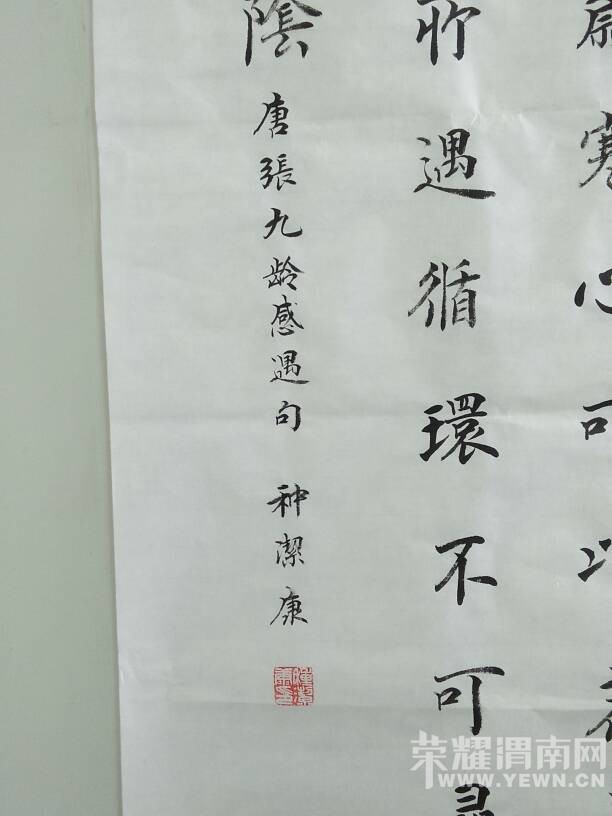 寒心可以
所遇循環不可尋
陰
唐張九齡感遇句 种潔康
荣耀渭南网
WWW.YEWN.CN